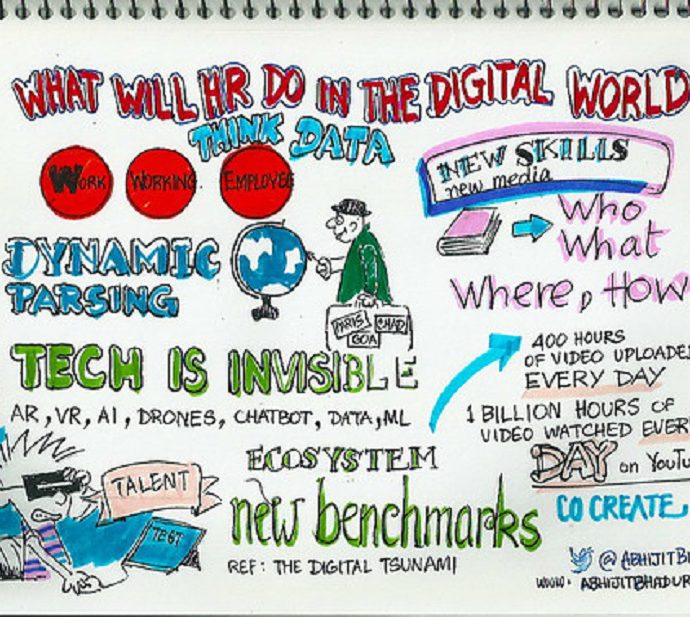 WHAT WILL HR DO IN THE DIGITAL WORLD
THINK DATA
WORK
WORKING
EMPLOYEE
NEW SKILLS
new media
WHO
WHAT
WHERE, HOW
DYNAMIC
PARSING
PARIS
GOA
TECH IS INVISIBLE
AR, VR, AI, DRONES, CHATBOT, DATA, ML
400 HOURS
OF VIDEO UPLOADE
EVERY DAY
1 BILLION HOURS OF
VIDEO WATCHED EVER
DAY on YouTu
ECOSYSTEM
new benchmarks
REF: THE DIGITAL TSUNAMI
TALENT
TEST
CO CREATE
@ABHIJITB
www. ABHIJITBHADUR